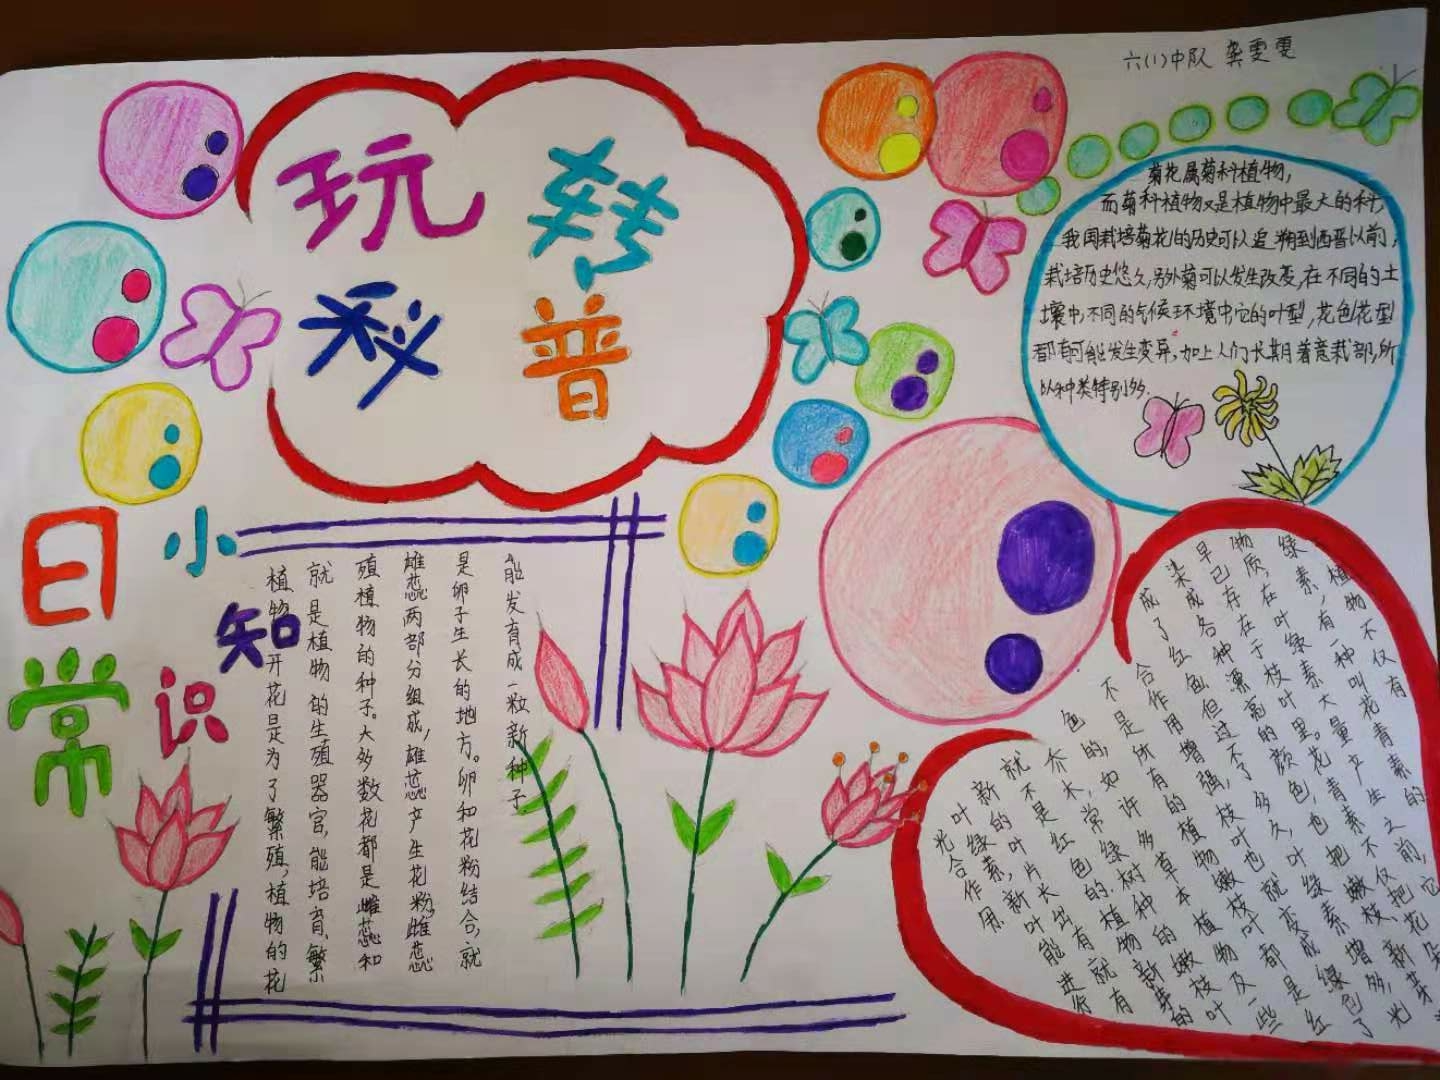 六(1)中队 龚雯雯
玩转
秘普
日常小知识
菊花属菊科植物,
而菊科植物又是植物中最大的科,
我国栽培菊花的历史可以追溯到西晋以前,
栽培历史悠久,另外菊可以发生改变,在不同的土
壤中,不同的气候环境中,它的叶型,花色花型
都有可能发生变异,加上人们长期着意栽部,所
以种类特别多.
植物开花是为了繁殖,植物的花
就是植物的生殖器官,能培育、繁
殖植物的种子。大多数花都是雌蕊和
雄蕊两部分组成,雄蕊产生花粉,雌蕊
是卵子生长的地方。卵和花粉结合,就
能发育成一粒新种子
植物不仅有
绿素,有一种叫花青素的
物质,在叶绿素大量产生之前,它
早已存在于枝叶里。花青素不仅把花朵
染成各种漂亮的颜色,也把嫩枝、新芽
成了红色但过不了多久,叶绿素增多,光
合作用增强,枝叶也就变成绿色了
不是所有的植物嫩枝叶都是红
色的,如许多草本植物及一些
乔木,常绿树种的嫩枝叶
就不是红色的.植物新芽的
新的叶片长出有就有
叶绿素,新叶能进行
光合作用